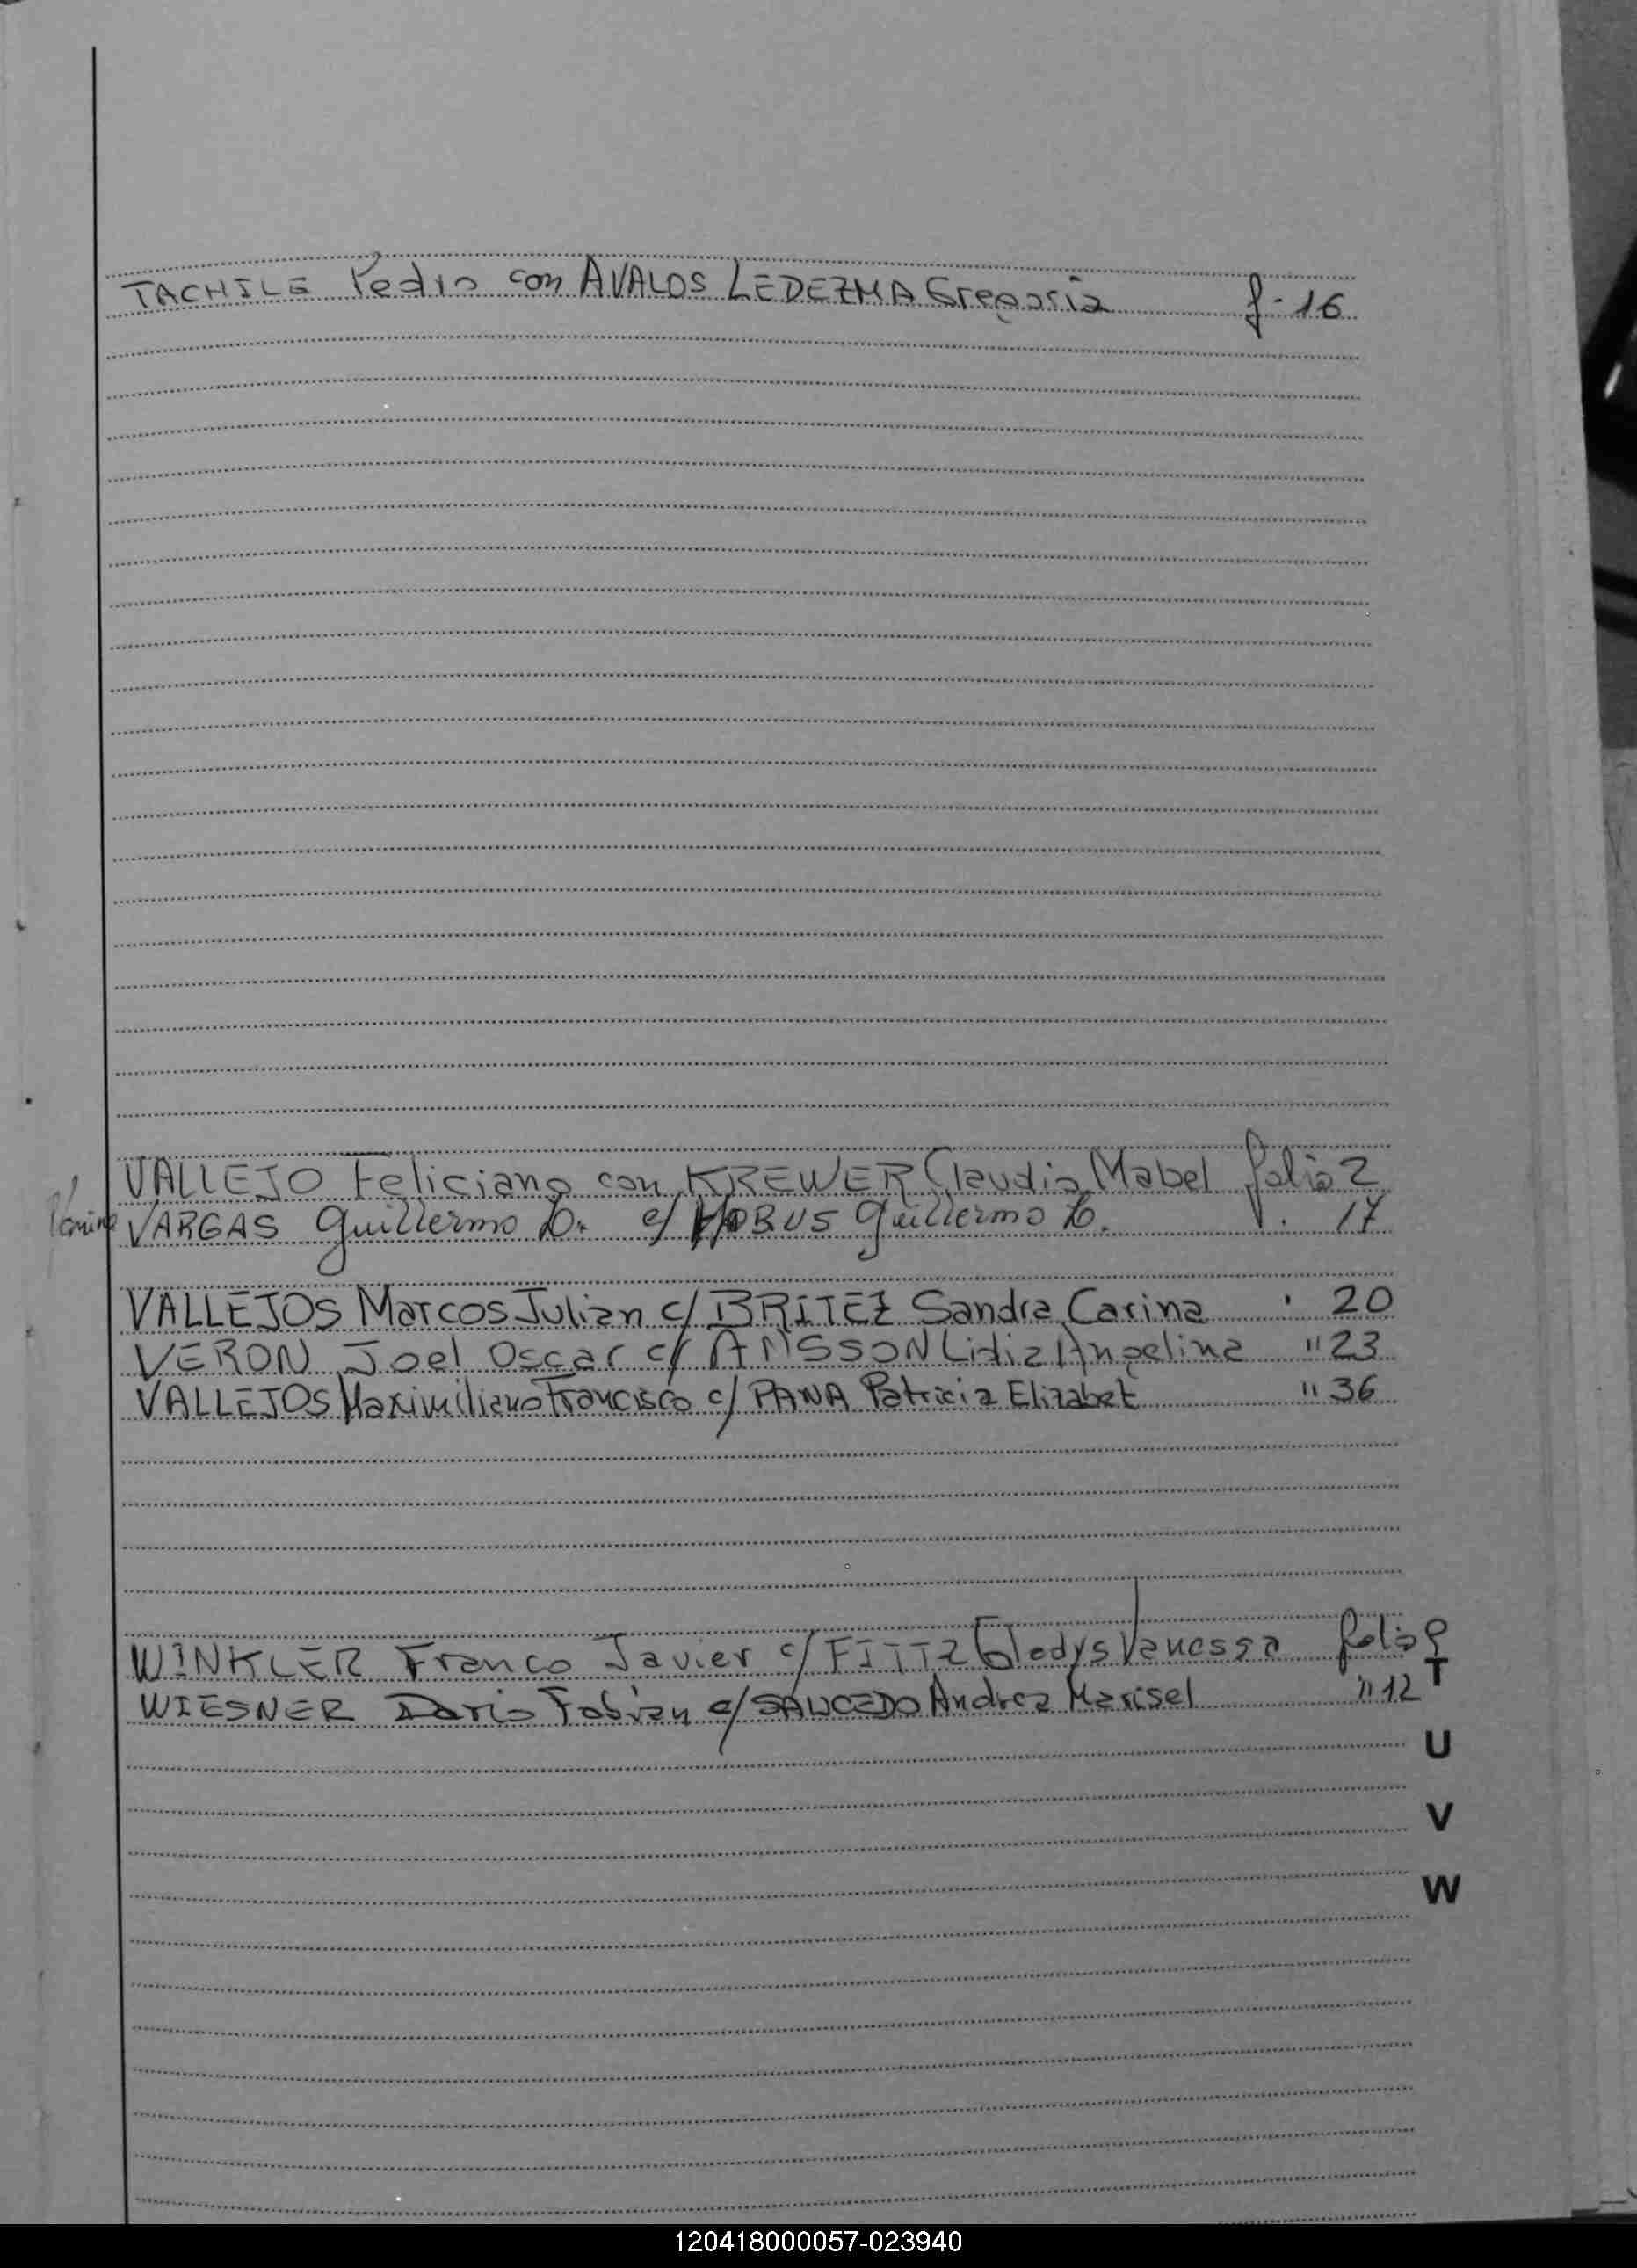 TACHILE Pedro con AVALOS LEDEZMA Gregoria f- 16
VALLEJO Feliciano con KREWER Claudia Mabel folio 2
VARGAS Guillermo D. c/ HOBUS Guillermo D. 17
VALLEJOS Marcos Julian c/ BRITEZ Sandra Carina " 20
VERON Joel Oscar c/ Lidia Angelina " 23
VALLEJOS Maximiliano Francisco c/ PANA Patricia Elizabet " 36
WINKLER Franco Javier c/ Gladys Vanessa folio 9
T
WIESNER Dario Fabian c/ SAUCEDO Andrea Marisel " 12
U
V
W
120418000057-023940